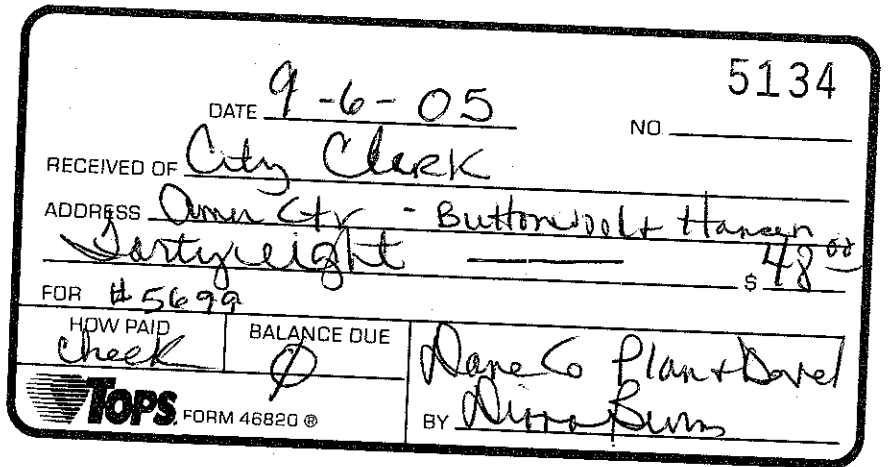 5134
DATE 9-6-05 NO.
RECEIVED OF City Clerk
ADDRESS Ctr - Buttonwood + Hansen
Forty eight — $ 48 00
FOR # 5699
HOW PAID BALANCE DUE
check 0
Dane Co Plan + Devel
TOPS FORM 46820 ®
BY Burns